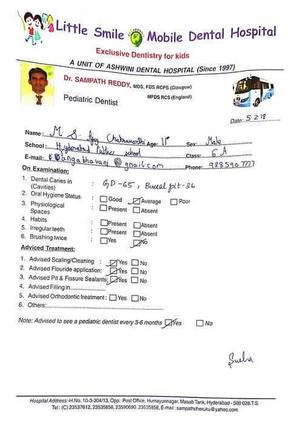 Little Smile Mobile Dental Hospital
Exclusive Dentistry for kids
A UNIT OF ASHWINI DENTAL HOSPITAL (Since 1997)
Dr. SAMPATH REDDY, MDS, FDS RCPS (Glasgow)
MFDS RCS (England)
Pediatric Dentist
Date: 5/2/18
Name: M S Age: 11 Sex: Male
School: Hyderabad Public school Class: 6 A
E-mail: @gmail.com Phone:
On Examination:
1. Dental Caries in (Cavities) : GD-65, Buccal pit-36
2. Oral Hygiene Status : Good Average Poor
3. Physiological Spaces : Present Absent
4. Habits : Present Absent
5. Irregular teeth : Present Absent
6. Brushing twice : Yes No
7. Others
Adviced Treatment:
1. Advised Scaling/Cleaning : Yes No
2. Advised Flouride application: Yes No
3. Advised Pit & Fissure Sealants: Yes No
4. Advised Filling in
5. Advised Orthodontic treatment : Yes No
6. Other
Note: Advised to see a pediatric dentist every 3-6 months Yes No
Hospital Address:-H.No. 10-3-304/13, Opp: Post Office, Humayunnagar, Masab Tank, Hyderabad - 500 028.T.S.
Tel: (C) 23537612, 23535656, 23590690, 23535858, E-mail: sampathcheruku@yahoo.com